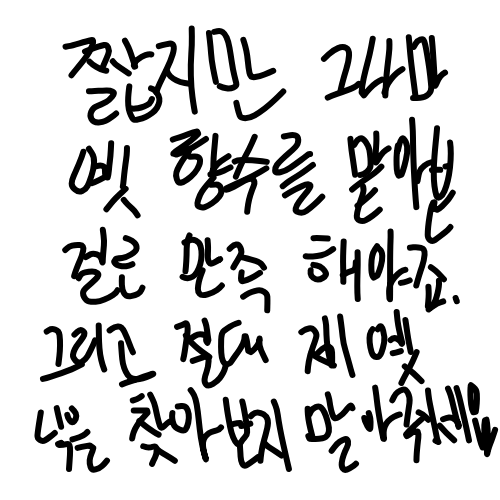 짧지만 그나마
옛 향수를 맡아본
걸로 만족 해야죠.
그리고 절대 제 옛
닉을 찾아보지 말아줘세요